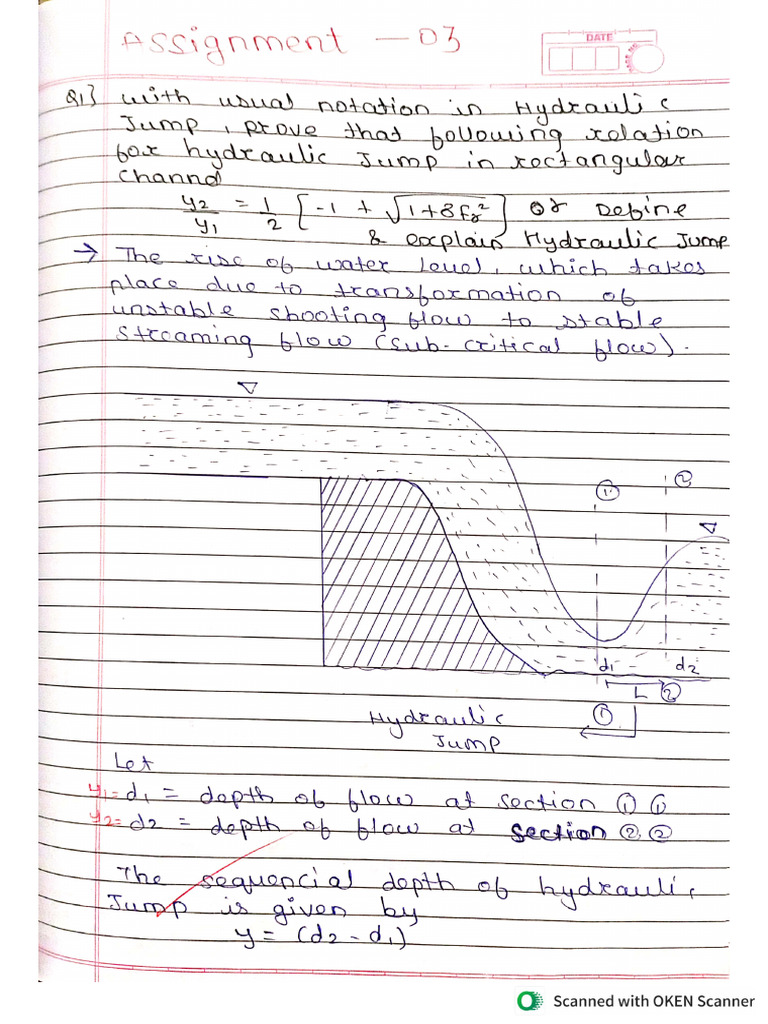 Assignment — 03
DATE
Q1} with usual notation in Hydraulic
Jump, prove that following relation
for hydraulic Jump in rectangular
Channel
y2/y1 = 1/2 [-1 + √1+8Fr²] or Define
& explain Hydraulic Jump
→ The rise of water level, which takes
place due to transformation of
unstable shooting flow to stable
streaming flow (sub-critical flow).
① ②
d1 d2
L ②
①
Hydraulic
Jump
Let
y1= d1 = depth of flow at section ① ①
y2= d2 = depth of flow at section ② ②
The sequencial depth of hydraulic
Jump is given by
y = (d2 - d1)
Scanned with OKEN Scanner